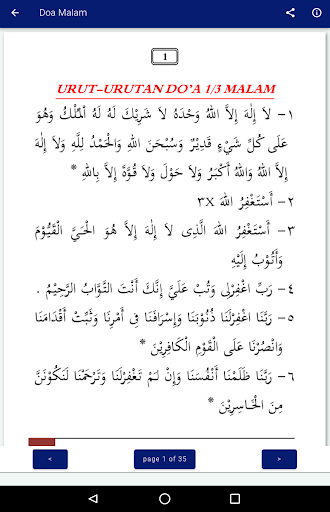 Doa Malam
1
URUT-URUTAN DO'A 1/3 MALAM
١- لاَ إِلٰهَ إِلاَّ اللهُ وَحْدَهُ لاَ شَرِيْكَ لَهُ لَهُ الْمُلْكُ وَهُوَ
عَلَى كُلِّ شَيْءٍ قَدِيْرٌ وَسُبْحَنَ اللهِ وَالْحَمْدُ لِلَّهِ وَلاَ إِلٰهَ
إِلاَّ اللهُ وَاللهُ أَكْبَرُ وَلاَ حَوْلَ وَلاَ قُوَّةَ إِلاَّ بِاللهِ *
٢- أَسْتَغْفِرُ اللهَ ٣X
٣- أَسْتَغْفِرُ اللهَ الَّذِى لاَ إِلٰهَ إِلاَّ هُوَ الْحَيَّ الْقَيُّوْمَ
وَأَتُوْبُ إِلَيْهِ
٤- رَبِّ اغْفِرْلِى وَتُبْ عَلَيَّ إِنَّكَ أَنْتَ التَّوَّابُ الرَّحِيْمُ .
٥- رَبَّنَا اغْفِرْلَنَا ذُنُوْبَنَا وَإِسْرَافَنَا فِى أَمْرِنَا وَثَبِّتْ أَقْدَامَنَا
وَانْصُرْنَا عَلَى الْقَوْمِ الْكَافِرِيْنَ *
٦- رَبَّنَا ظَلَمْنَا أَنْفُسَنَا وَإِنْ لَمْ تَغْفِرْلَنَا وَتَرْحَمْنَا لَنَكُوْنَنَّ
مِنَ الْخَاسِرِيْنَ *
< page 1 of 35 >